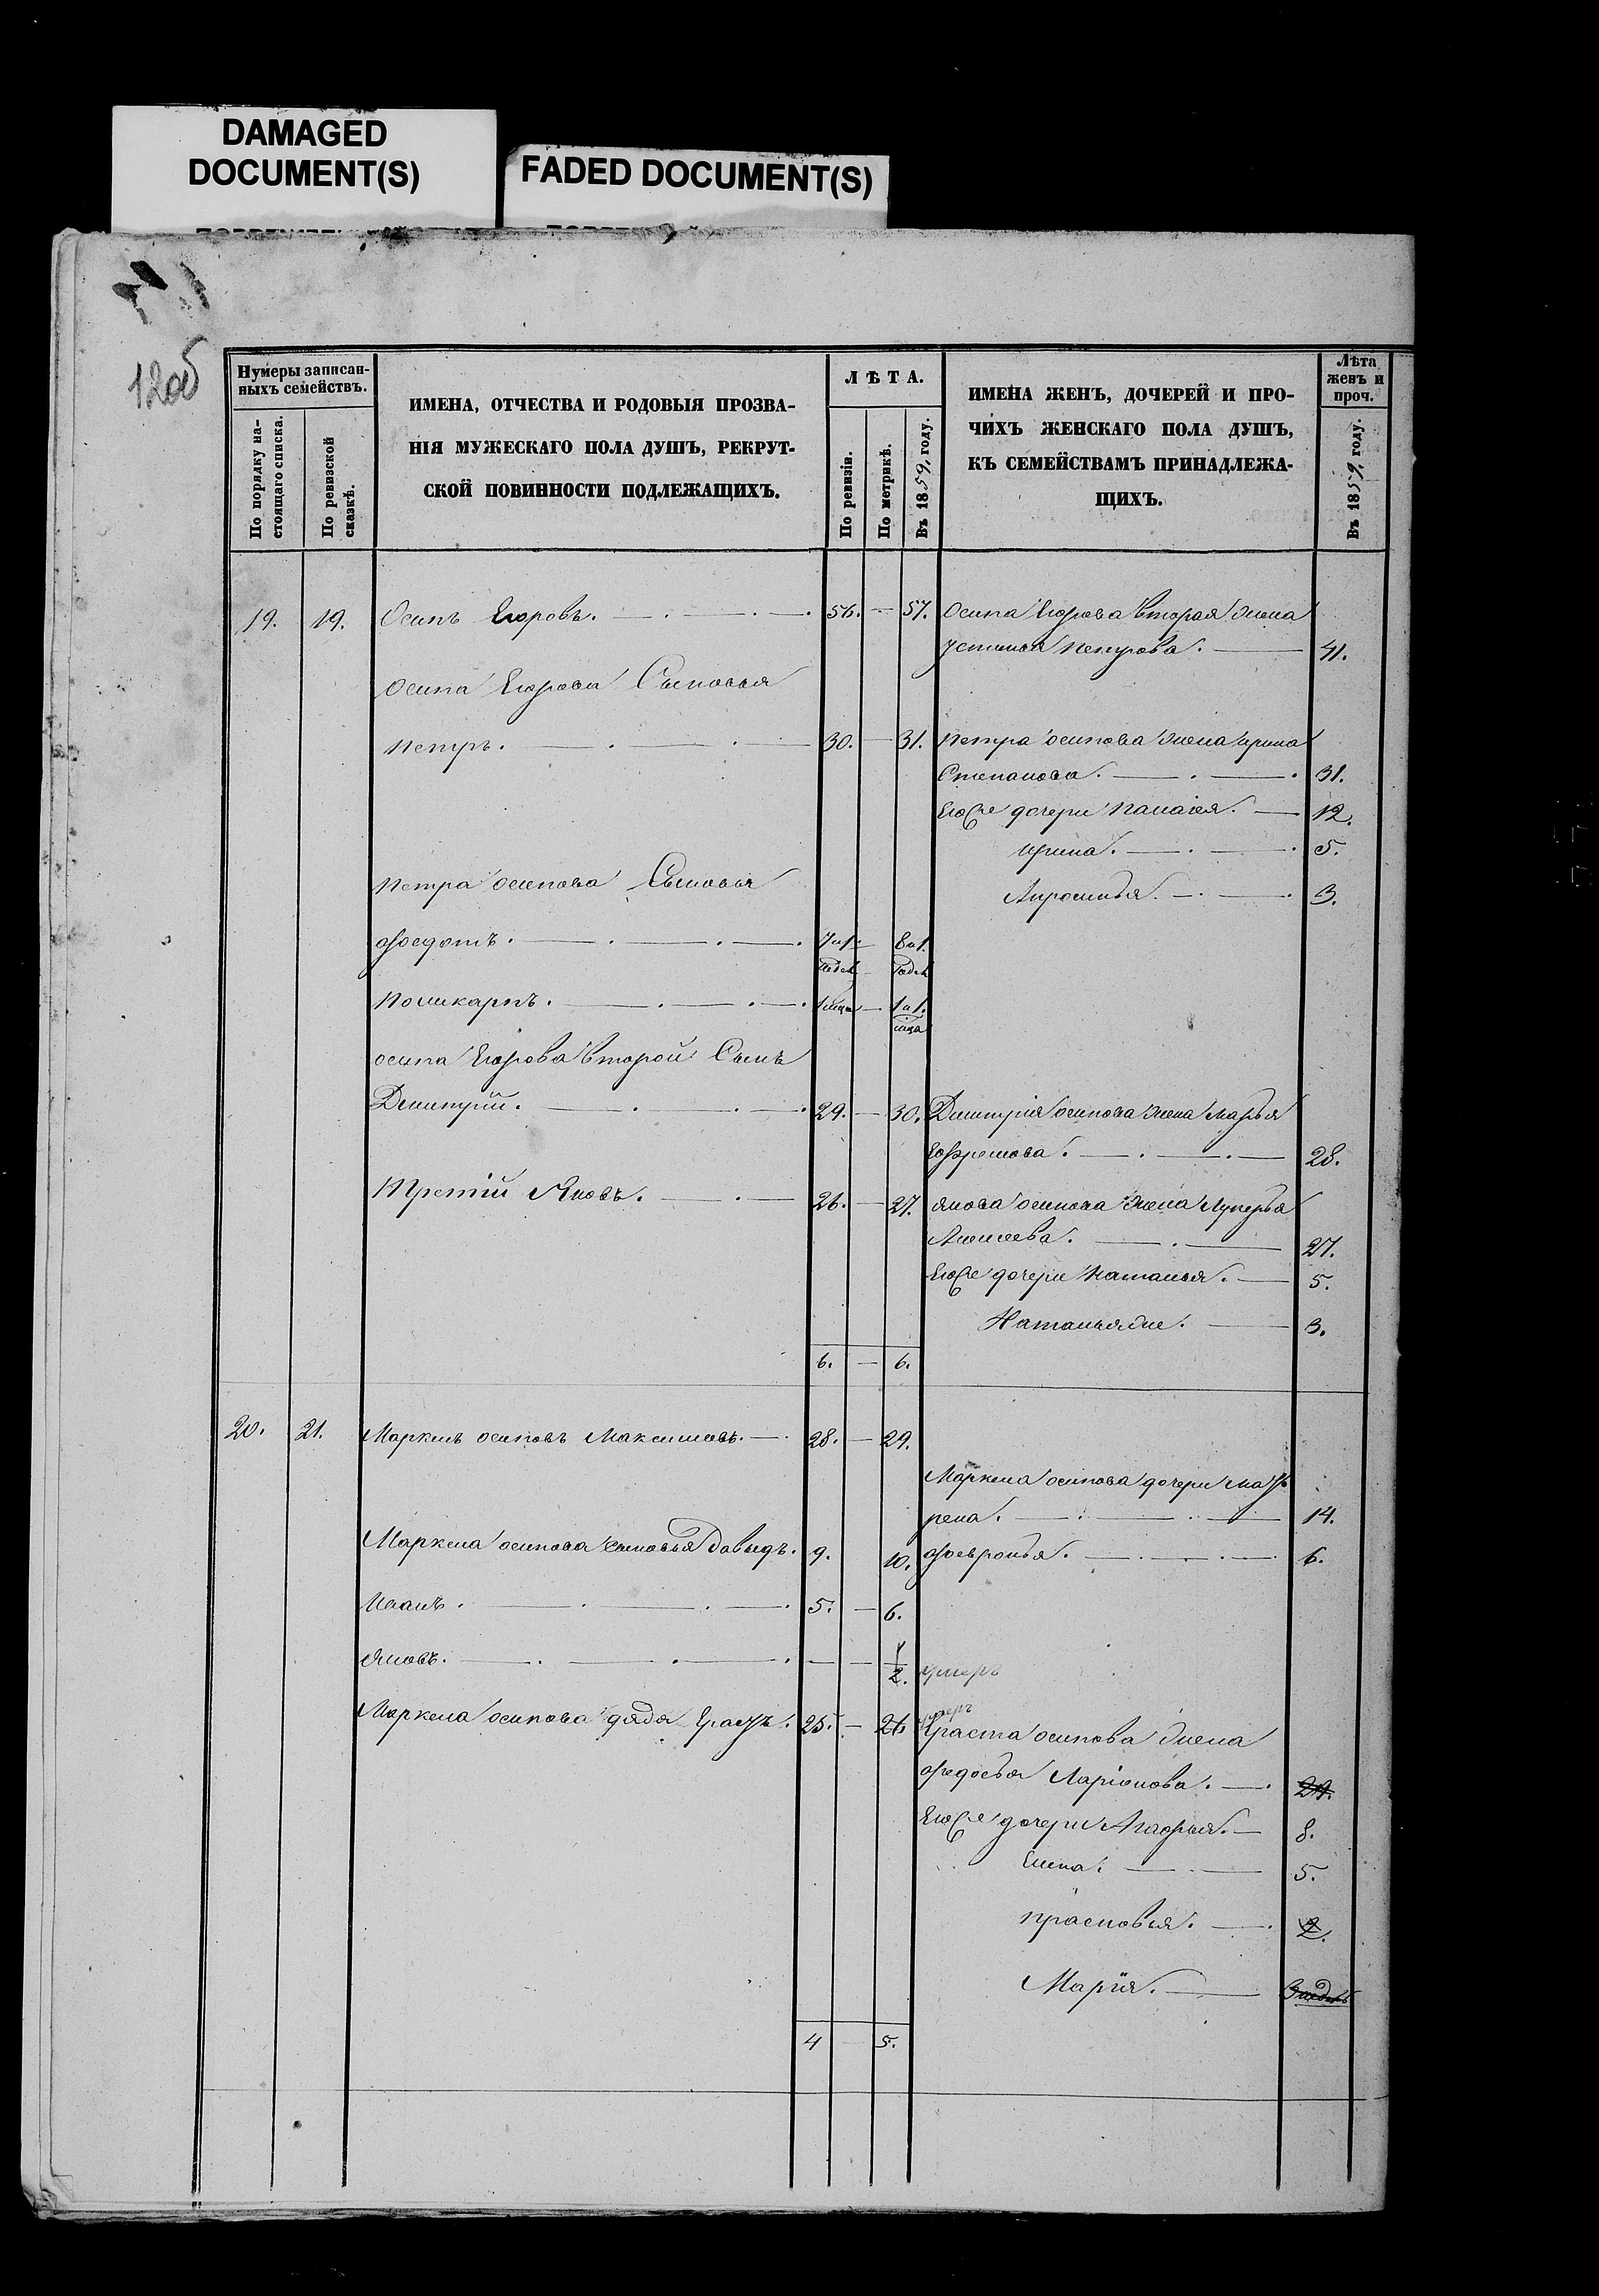 DAMAGED
DOCUMENT(S)
FADED DOCUMENT(S)
12об
Нумеры записан-
ныхъ семействъ.
По порядку на-
стоящаго списка.
По ревизской
сказкѣ.
ИМЕНА, ОТЧЕСТВА И РОДОВЫЯ ПРОЗВА-
НІЯ МУЖЕСКАГО ПОЛА ДУШЪ, РЕКРУТ-
СКОЙ ПОВИННОСТИ ПОДЛЕЖАЩИХЪ.
ЛѢТА.
По ревизіи.
По метрикѣ.
Въ 1859, году.
ИМЕНА ЖЕНЪ, ДОЧЕРЕЙ И ПРО-
ЧИХЪ ЖЕНСКАГО ПОЛА ДУШЪ,
КЪ СЕМЕЙСТВАМЪ ПРИНАДЛЕЖА-
ЩИХЪ.
Лѣта
женъ и
проч.
Въ 1859, году.
19. 19. Осипъ Егоровъ. 56. — 57. Осипа Егорова вторая жена
Устинья Петрова. 41.
Осипа Егорова Сыновья
Петръ. 30. — 31. Петра осипова жена ирина
Степанова. 31.
Его же дочери Палагея. 12.
ирина. 5.
Петра осипова Сыновья
Апросинья. 3.
Федотъ. 7 8
Поликарпъ. 1 — 1
осипа Егорова второй Сынъ
Дмитрій. 29. — 30. Дмитрія осипова жена Марья
Ефремова. 28.
Третій Яковъ. 26. — 27. якова осипова жена Лукерья
Алексеева. 27.
Его же дочери Наталья. 5.
Наталья же. 3.
6. — 6.
20. 21. Маркелъ осиповъ Максимовъ. 28. — 29.
Маркела осипова дочери Мат
рена. 14.
Маркела осипова сыновья Давыдъ. 9. 10. Февронья. 6.
Иванъ. 5. — 6.
Яковъ. — — 1/2. умеръ
умеръ
Маркела осипова дядя Ерастъ. 25. — 26 Ераста осипова жена
Федосья Ларіонова. 24.
Его же дочери Агафья. 8.
Елена. 5.
прасковья. 2.
Марія. 3 недель
4 — 5.